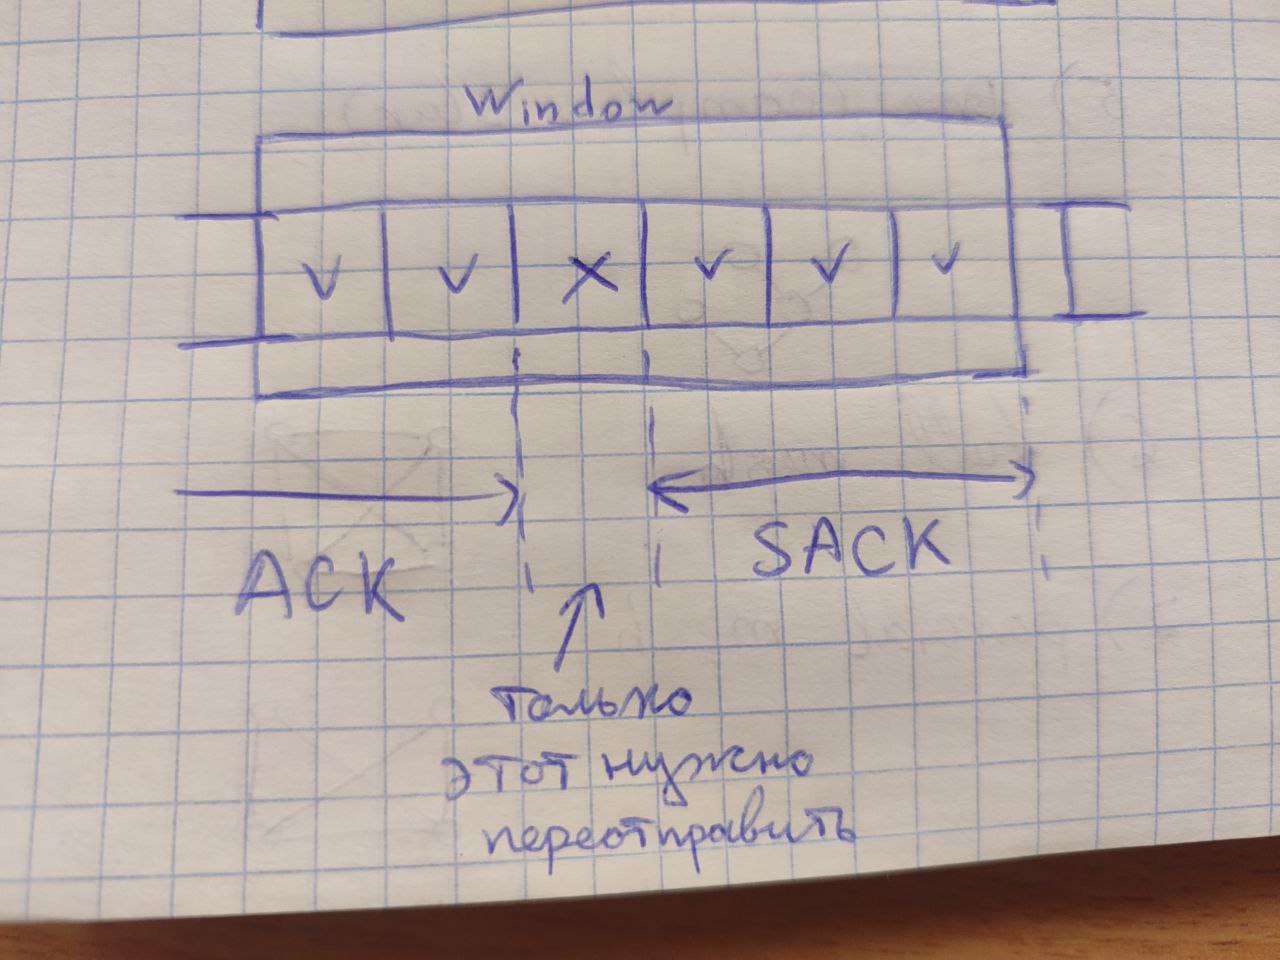 Window
ACK
SACK
только
этот нужно
переотправить